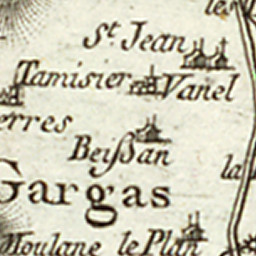 les
St. Jean
Tamisier
Vanel
erres
Beißan
la
Gargas
Moulane
le Plan